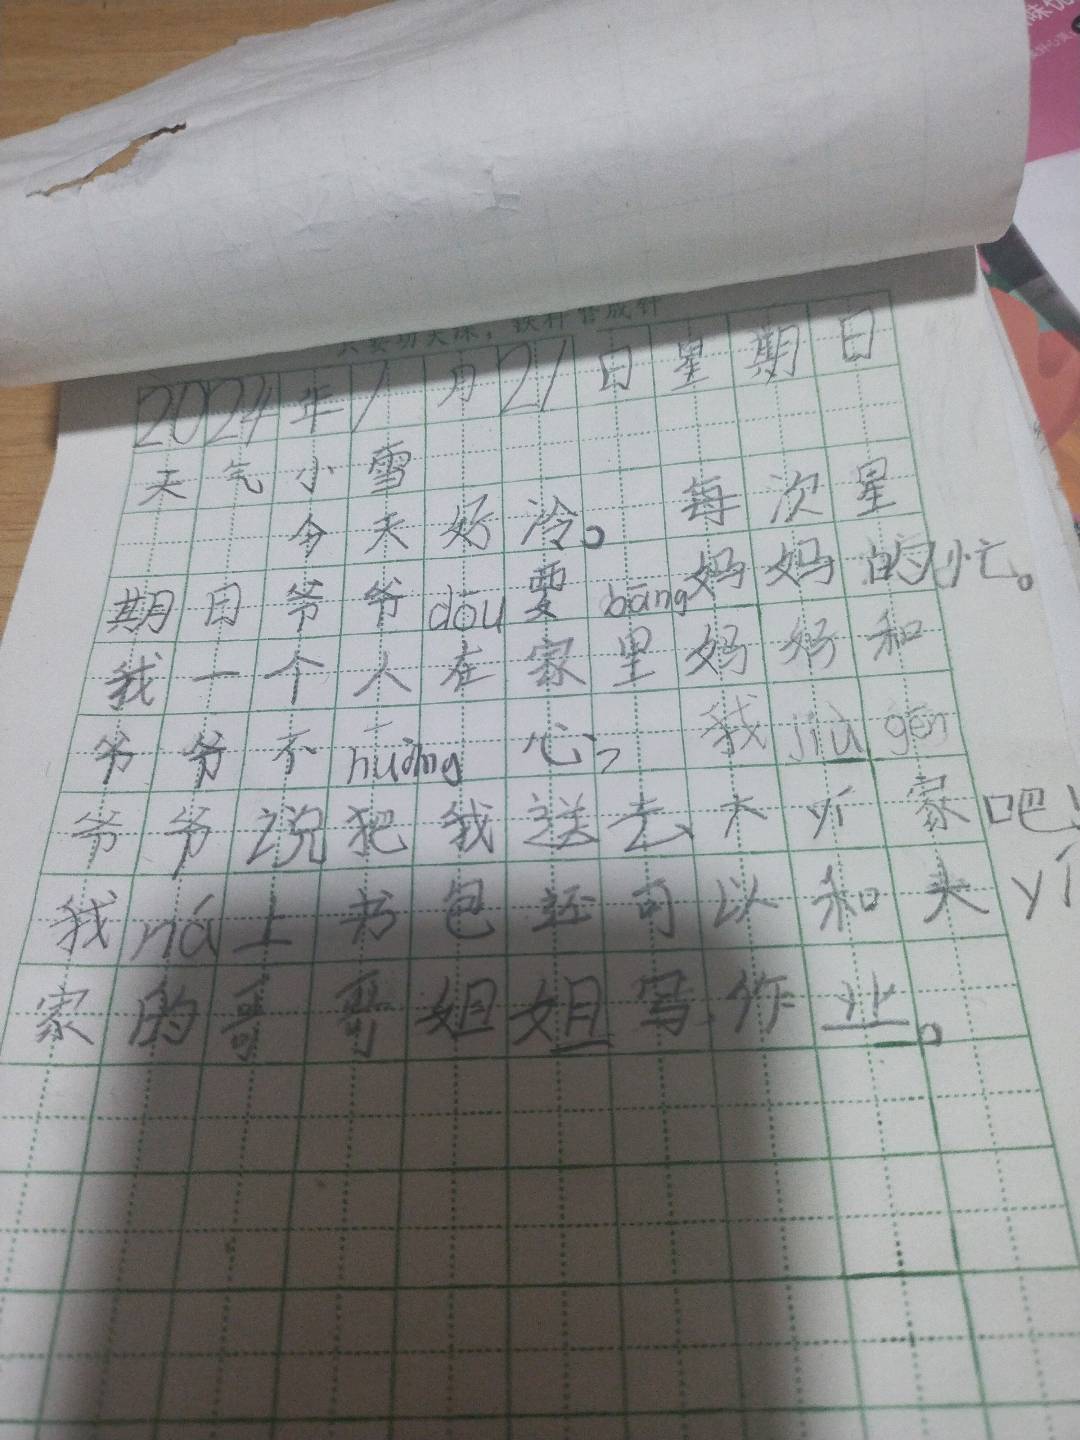 只要功夫深，铁杵磨成针
2024年1月21日星期日
天气小雪
今天好冷。每次星
期日爷爷dōu要bāng妈妈的忙。
我一个人在家里妈妈和
爷爷不huàng心，我jiù gēn
爷爷说把我送去大yí家吧！
我ná上书包还可以和大yí
家的哥哥姐姐写作业。